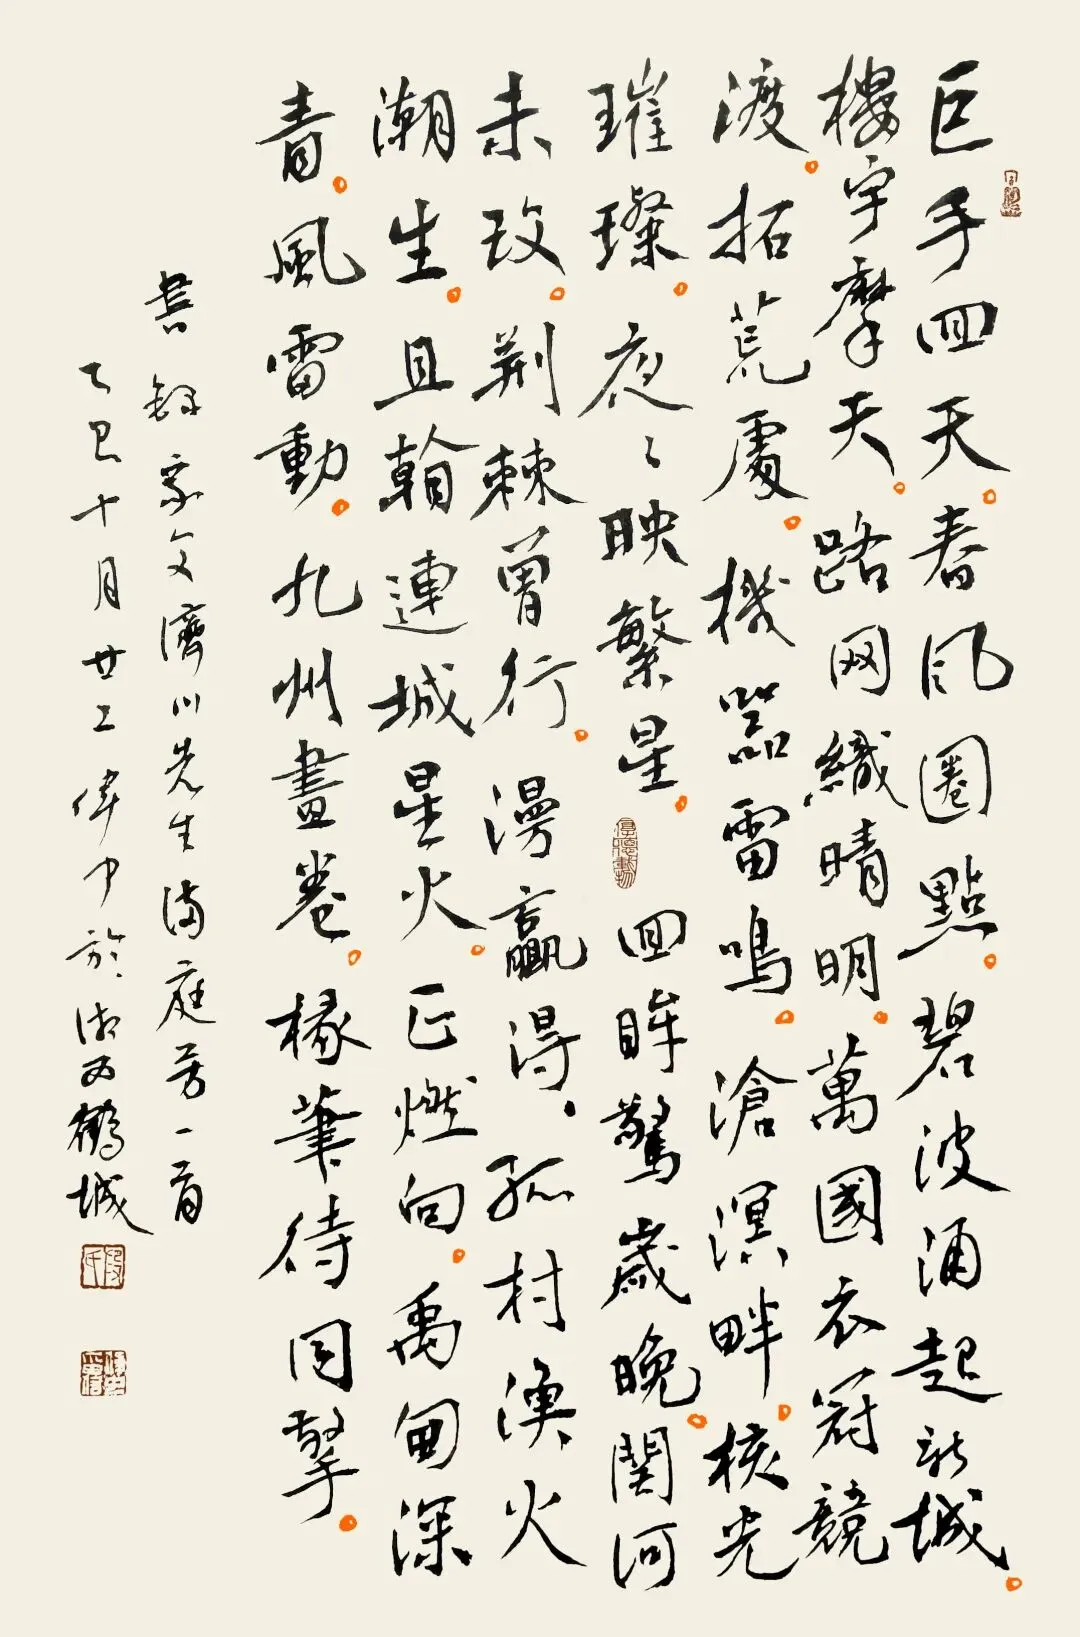 巨手回天。春风圈點。碧波涌起新城。
樓宇摩天。路网織晴明。萬國衣冠競
渡。拓荒處。機器雷鳴。滄溟畔。核光
璀璨。夜々映繁星。回眸驚歲晚。関河
未改。荆棘曾行。漫贏得、孤村漁火
潮生。且翰連城星火。已燃向。禹甸深
青。風雷動。九州畫卷。椽筆待同擎。
書錄家文濟川先生滿庭芳一首
乙巳十月廿二偉中於湘西鶴城
厚德載物
段氏